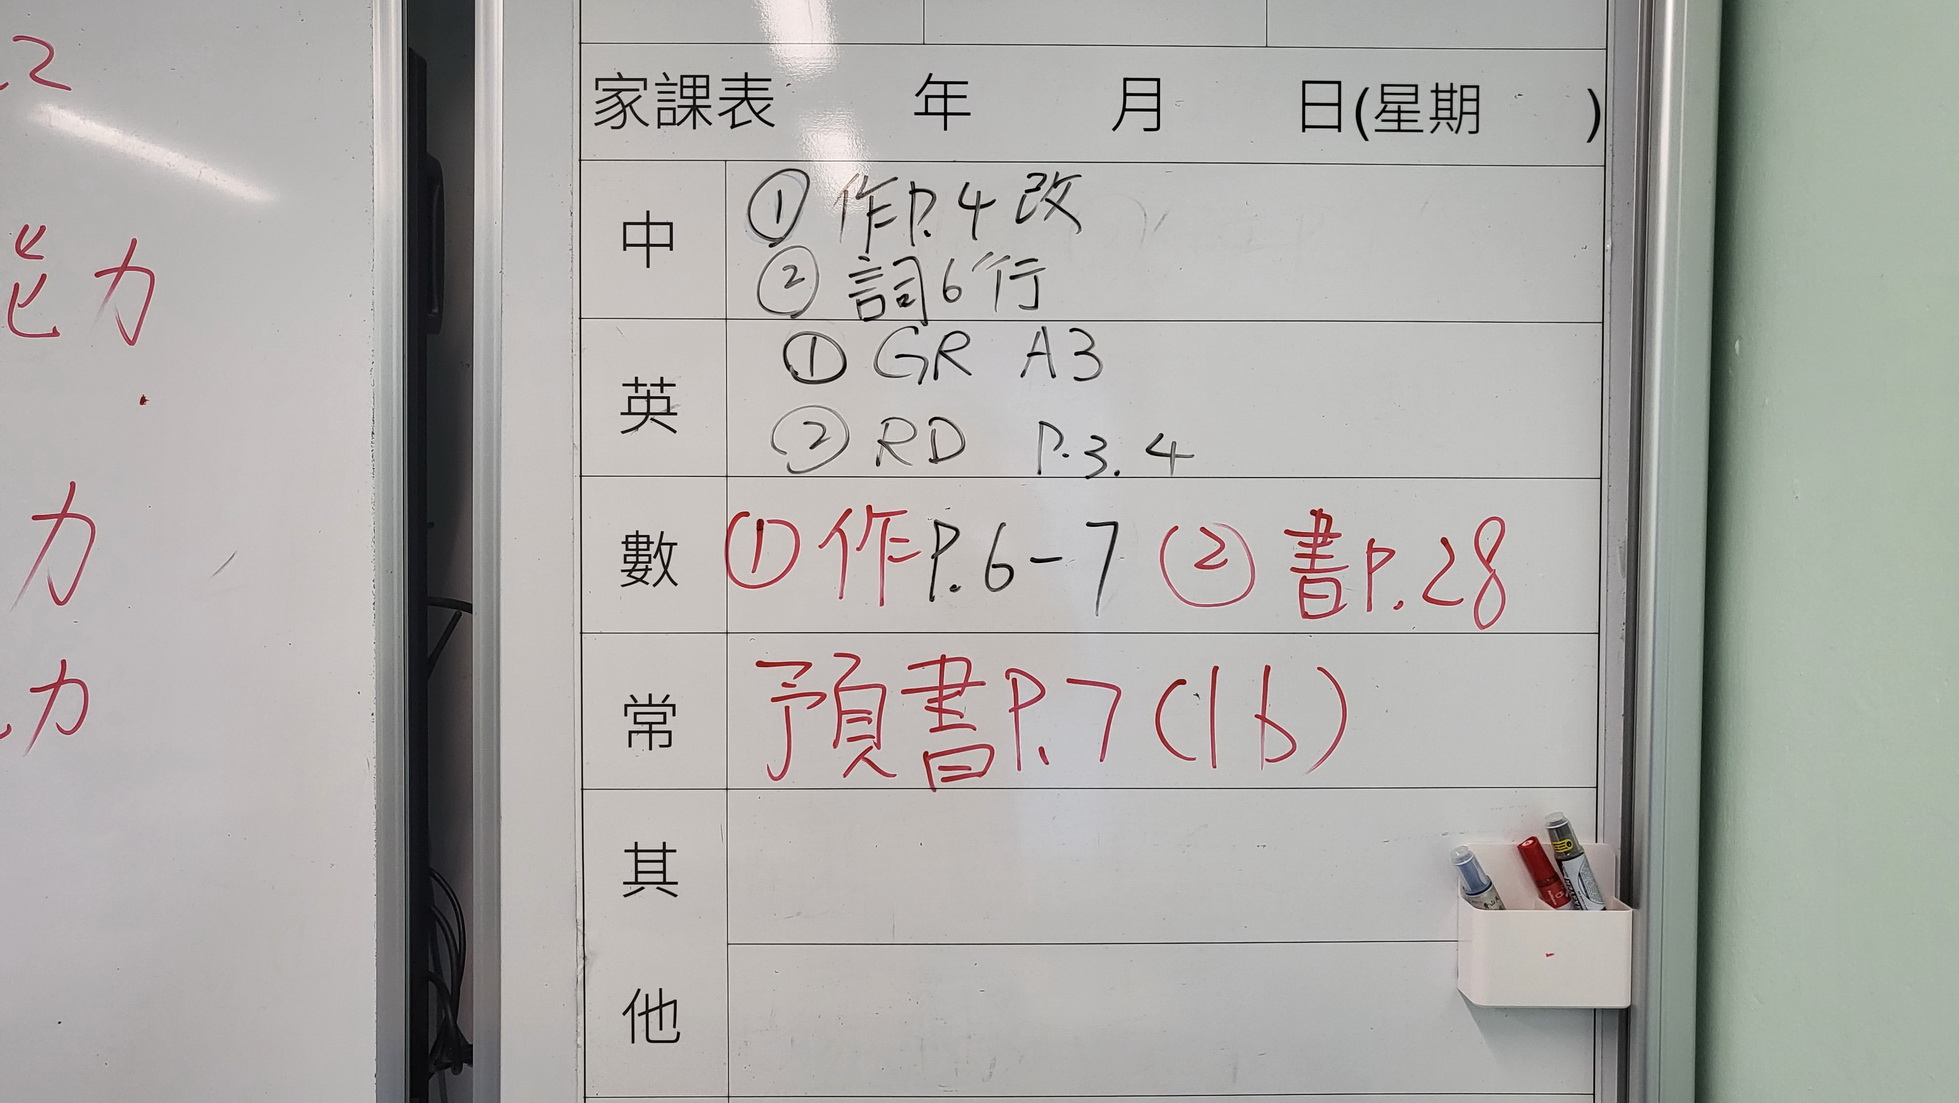 2
能力
力
力
家課表 年 月 日(星期 )
中
① 作P.4 改
② 詞6行
英
① GR A3
② RD P.3.4
數
① 作P.6-7 ② 書P.28
常
預書P.7(1b)
其
他